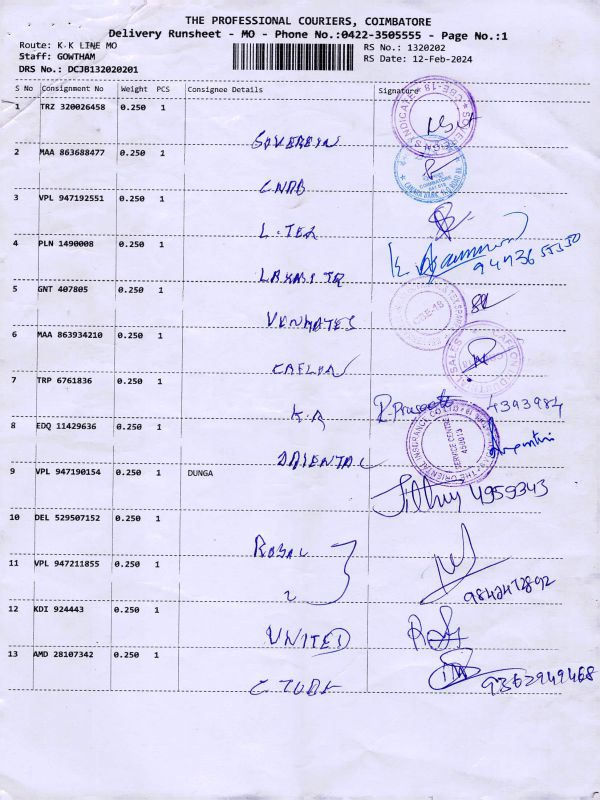 THE PROFESSIONAL COURIERS, COIMBATORE
Delivery Runsheet - MO - Phone No.:0422-3505555 - Page No.:1
Route: K K LINE MO
RS No.: 1320202
Staff: GOWTHAM
RS Date: 12-Feb-2024
DRS No.: DCJB132020201
S No Consignment No Weight PCS Consignee Details Signature
1 TRZ 320026458 0.250 1
SOVEREIN
2 MAA 863688477 0.250 1
CNDB
3 VPL 947192551 0.250 1
L. TEX
4 PLN 1490008 0.250 1
94436 55350
5 GNT 407805 0.250 1
VENKATES
6 MAA 863934210 0.250 1
7 TRP 6761836 0.250 1
K.R 4393984
8 EDQ 11429636 0.250 1
ORIENTAL
9 VPL 947190154 0.250 1 DUNGA
4959343
10 DEL 529507152 0.250 1
ROYAL
11 VPL 947211855 0.250 1
9842472892
12 KDI 924443 0.250 1
UNITED
13 AMD 28107342 0.250 1
C TUBE 9362949468